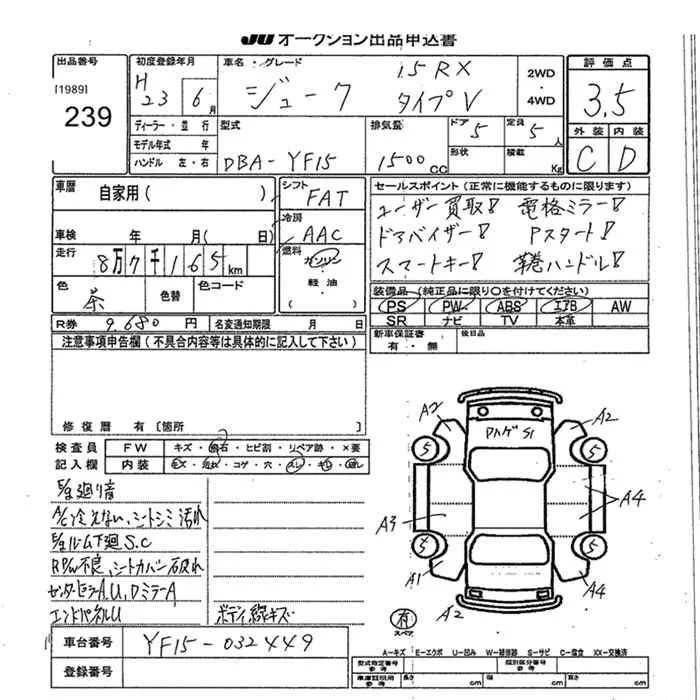 JU オークション出品申込書
出品番号
[1989]
239
初度登録年月
H 23 6月
車名・グレード
ジューク 15RX タイプV
2WD
・
4WD
評価点
3.5
外装 内装
C D
ディーラー・並行
モデル年式 年
ハンドル 左・右
型式
DBA-YF15
排気量
1500CC
ドア 5
形状
定員 5人
積載 Kg
車歴 自家用( )
シフト FAT
冷房 AAC
燃料
ガソリン
軽油
車検 年 月( 日)
走行 8万7千165km
色 茶
色替
色コード
R券 9,680円
名変通知期限 月 日
セールスポイント(正常に機能するものに限ります)
ユーザー買取! 電格ミラー!
ドアバイザー! Pスタート!
スマートキー! 革巻ハンドル!
装備品(純正品に限り○を付けてください)
PS PW ABS エアB AW
SR ナビ TV 本革
新車保証書
有・無
後日品
注意事項申告欄(不具合内容等は具体的に記入して下さい)
修復歴 有[箇所 ]
検査員
記入欄
FW キズ・飛石・ヒビ割・リペア跡・×要
内装 キズ・汚れ・コゲ・穴・スレ・キレ・
E/g廻り音
A/C冷えない、シートシミ汚れ
E/gルーム下廻S.C
R P/W不良、シートカバー破れ
センターピラーA.U、DミラーA
エンドパネルU
ボディ線キズ
車台番号 YF15-032449
登録番号
A2
ハゲ S1
A2
5
5
A3
A4
5
5
A1
A2
A4
有
スペア
A-キズ E-エクボ U-凹み W-補修跡 S-サビ C-腐食 XX-交換済
型式指定番号
参考
類別区分番号
参考
車庫証明用
参考
長さ cm
幅 cm
高さ cm